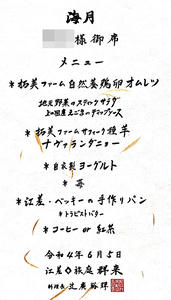 海月
様御席
メニュー
*拓美ファーム自然養鶏卵オムレツ
地元野菜のスティックサラダ
上ノ国産えごまのディップソース
*拓美ファームサフォーク種羊
ナヴァランダニョー
*自家製ヨーグルト
*苺
*江差・ベッキーの手作りパン
*トラピストバター
*コーヒー or 紅茶
令和4年6月5日
江差旅庭群来
料理長